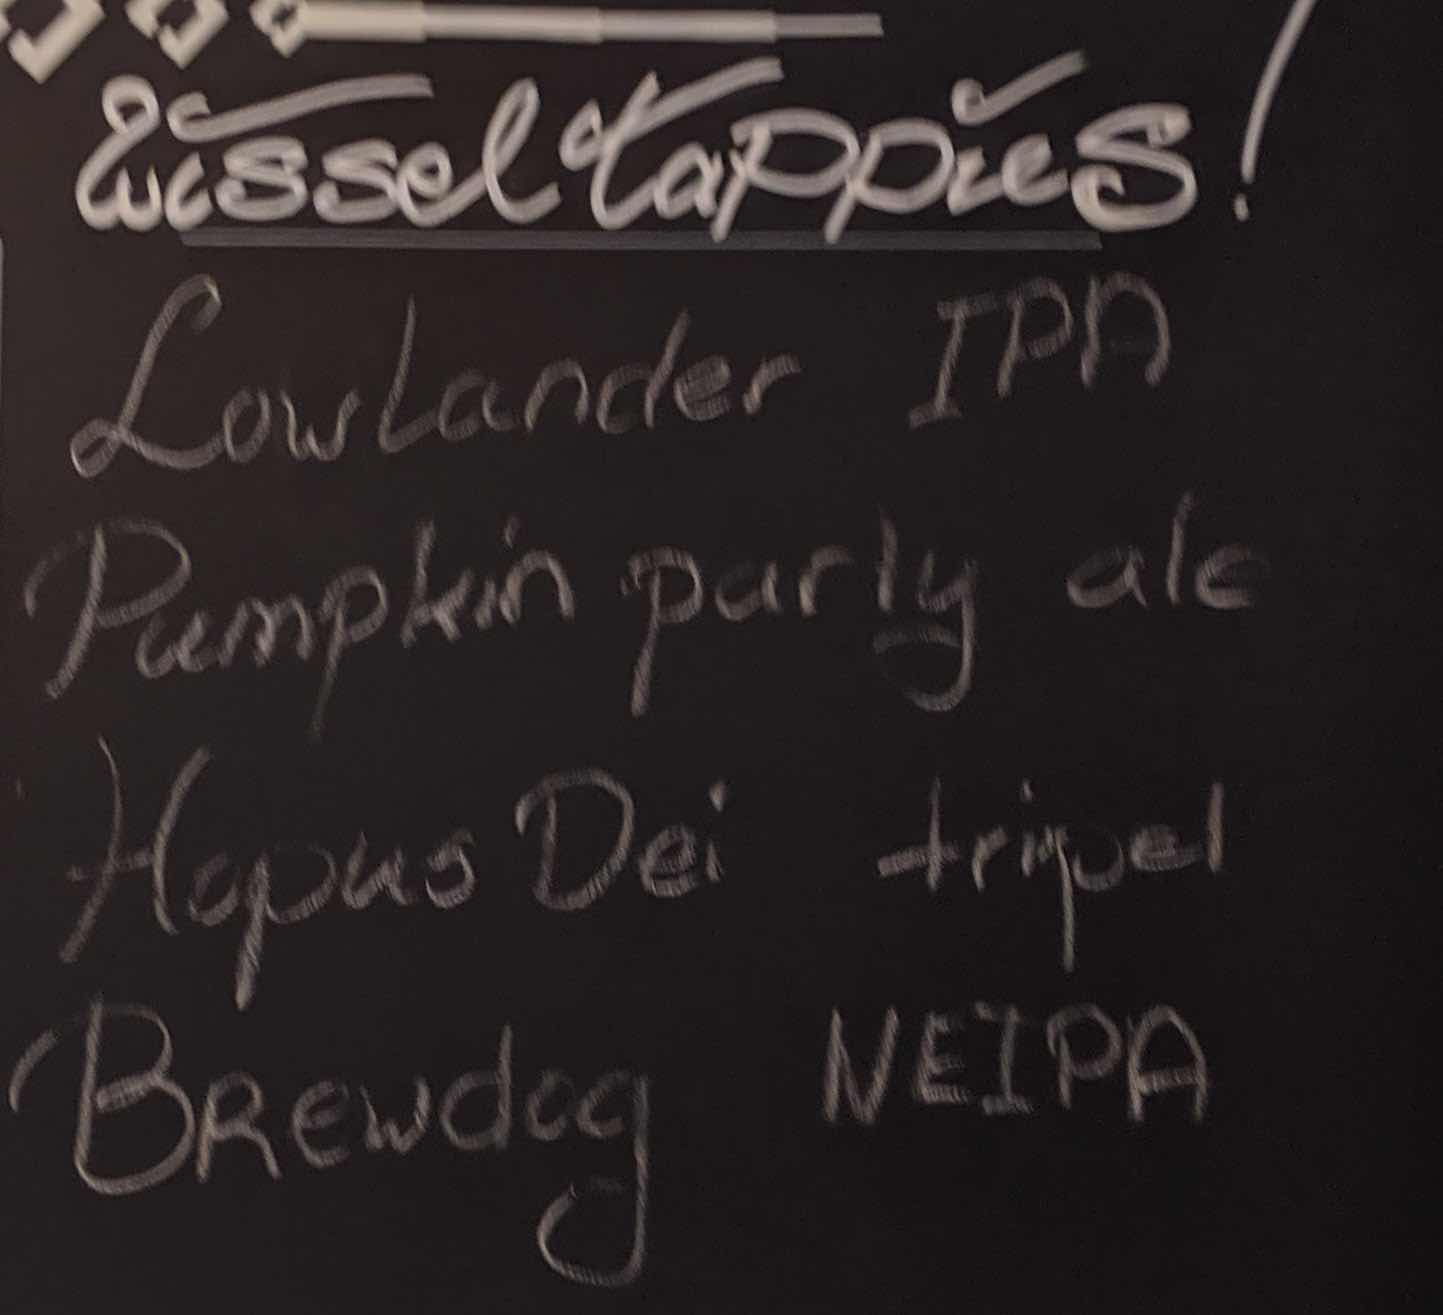 Wisseltappies!
Lowlander IPA
Pumpkin party ale
Hopus Dei tripel
Brewdog NEIPA